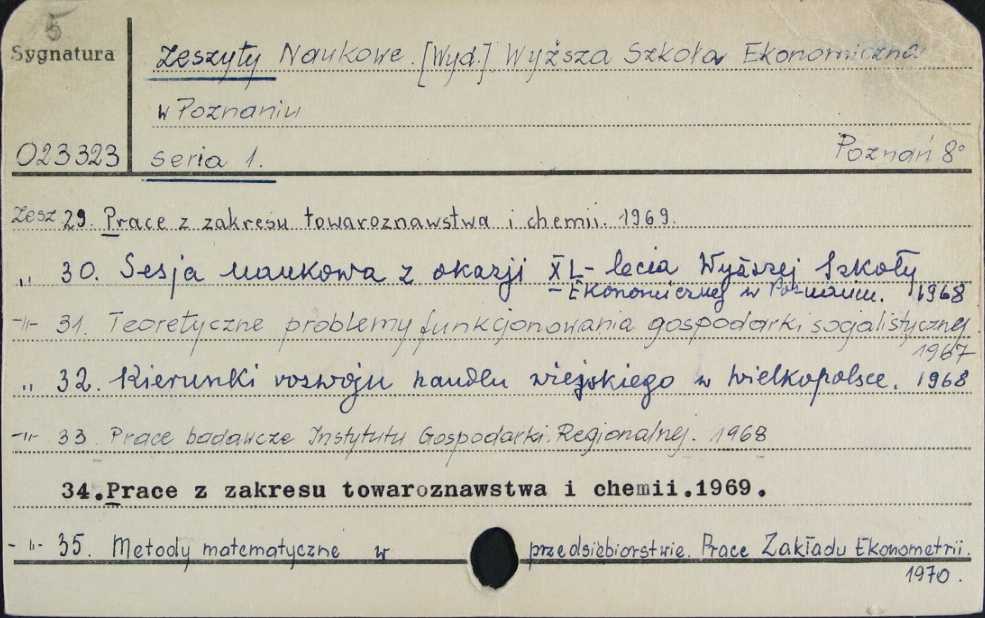 5
Sygnatura
Zeszyty Naukowe. [Wyd.] Wyższa Szkoła Ekonomiczna
w Poznaniu
023323 seria 1. Poznań 8°
Zesz 29. Prace z zakresu towaroznawstwa i chemii. 1969.
„ 30. Sesja naukowa z okazji XL-lecia Wyższej Szkoły
Ekonomicznej w Poznaniu. 1968
-"- 31. Teoretyczne problemy funkcjonowania gospodarki socjalistycznej.
1967
„ 32. Kierunki rozwoju handlu wiejskiego w Wielkopolsce. 1968
-"- 33. Prace badawcze Instytutu Gospodarki Regionalnej. 1968
34. Prace z zakresu towaroznawstwa i chemii. 1969.
-"- 35. Metody matematyczne w przedsiębiorstwie. Prace Zakładu Ekonometrii.
1970.